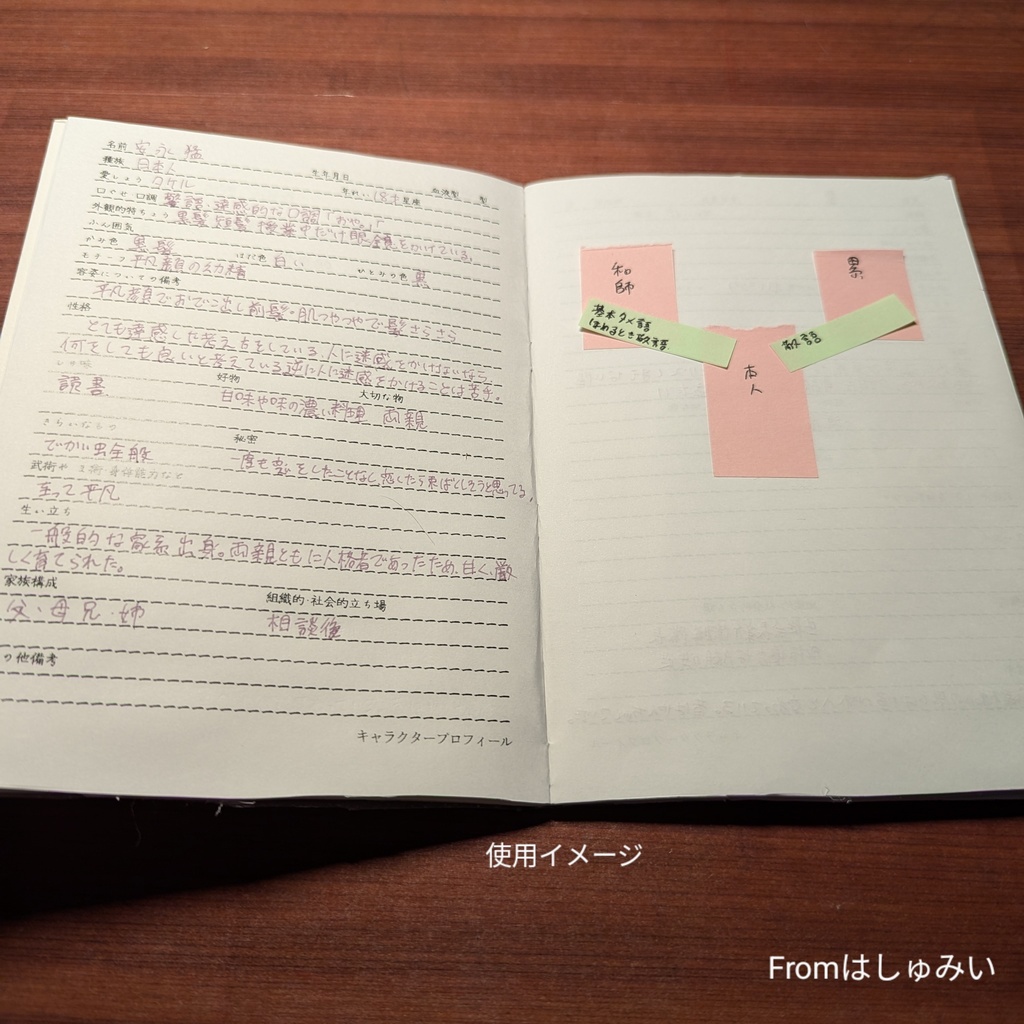 名前
種族 日本人 生年月日 血液型 型
愛しょう タケル 年れい 18才 星座
口ぐせ 口調 的な口調「おや。」
外観的特ちょう 黒髪 短髪 授業中だけ眼鏡をかけている。
ふん囲気
かみ色 黒髪 はだ色 白い ひとみの色 黒
モチーフ 平凡顔の
容姿についての備考
平凡顔でおでこ出し前髪。肌つやつやで髪さらさら
性格
とても達感した考え方をしている、人に迷惑をかけないなら
何をしても良いと考えている逆に人に迷惑をかけることは苦手。
しゅ味 好物 大切な物
読書 甘味や味の濃い料理 両親
きらいなもの 秘密
でかい虫全般 一度も恋をしたことなし 恋したら束ばくしそうと思ってる。
武術や 身体能力など
至って平凡
生い立ち
一般的な家系出身。両親ともに人格者であったため、甘く、厳
しく育てられた。
家族構成 組織的・社会的立ち場
父・母 兄・姉 相談役
の他備考
キャラクタープロフィール
和
師
基本タメ語
ほめるとき敬語
本
人
敬語
使用イメージ
Fromはしゅみい